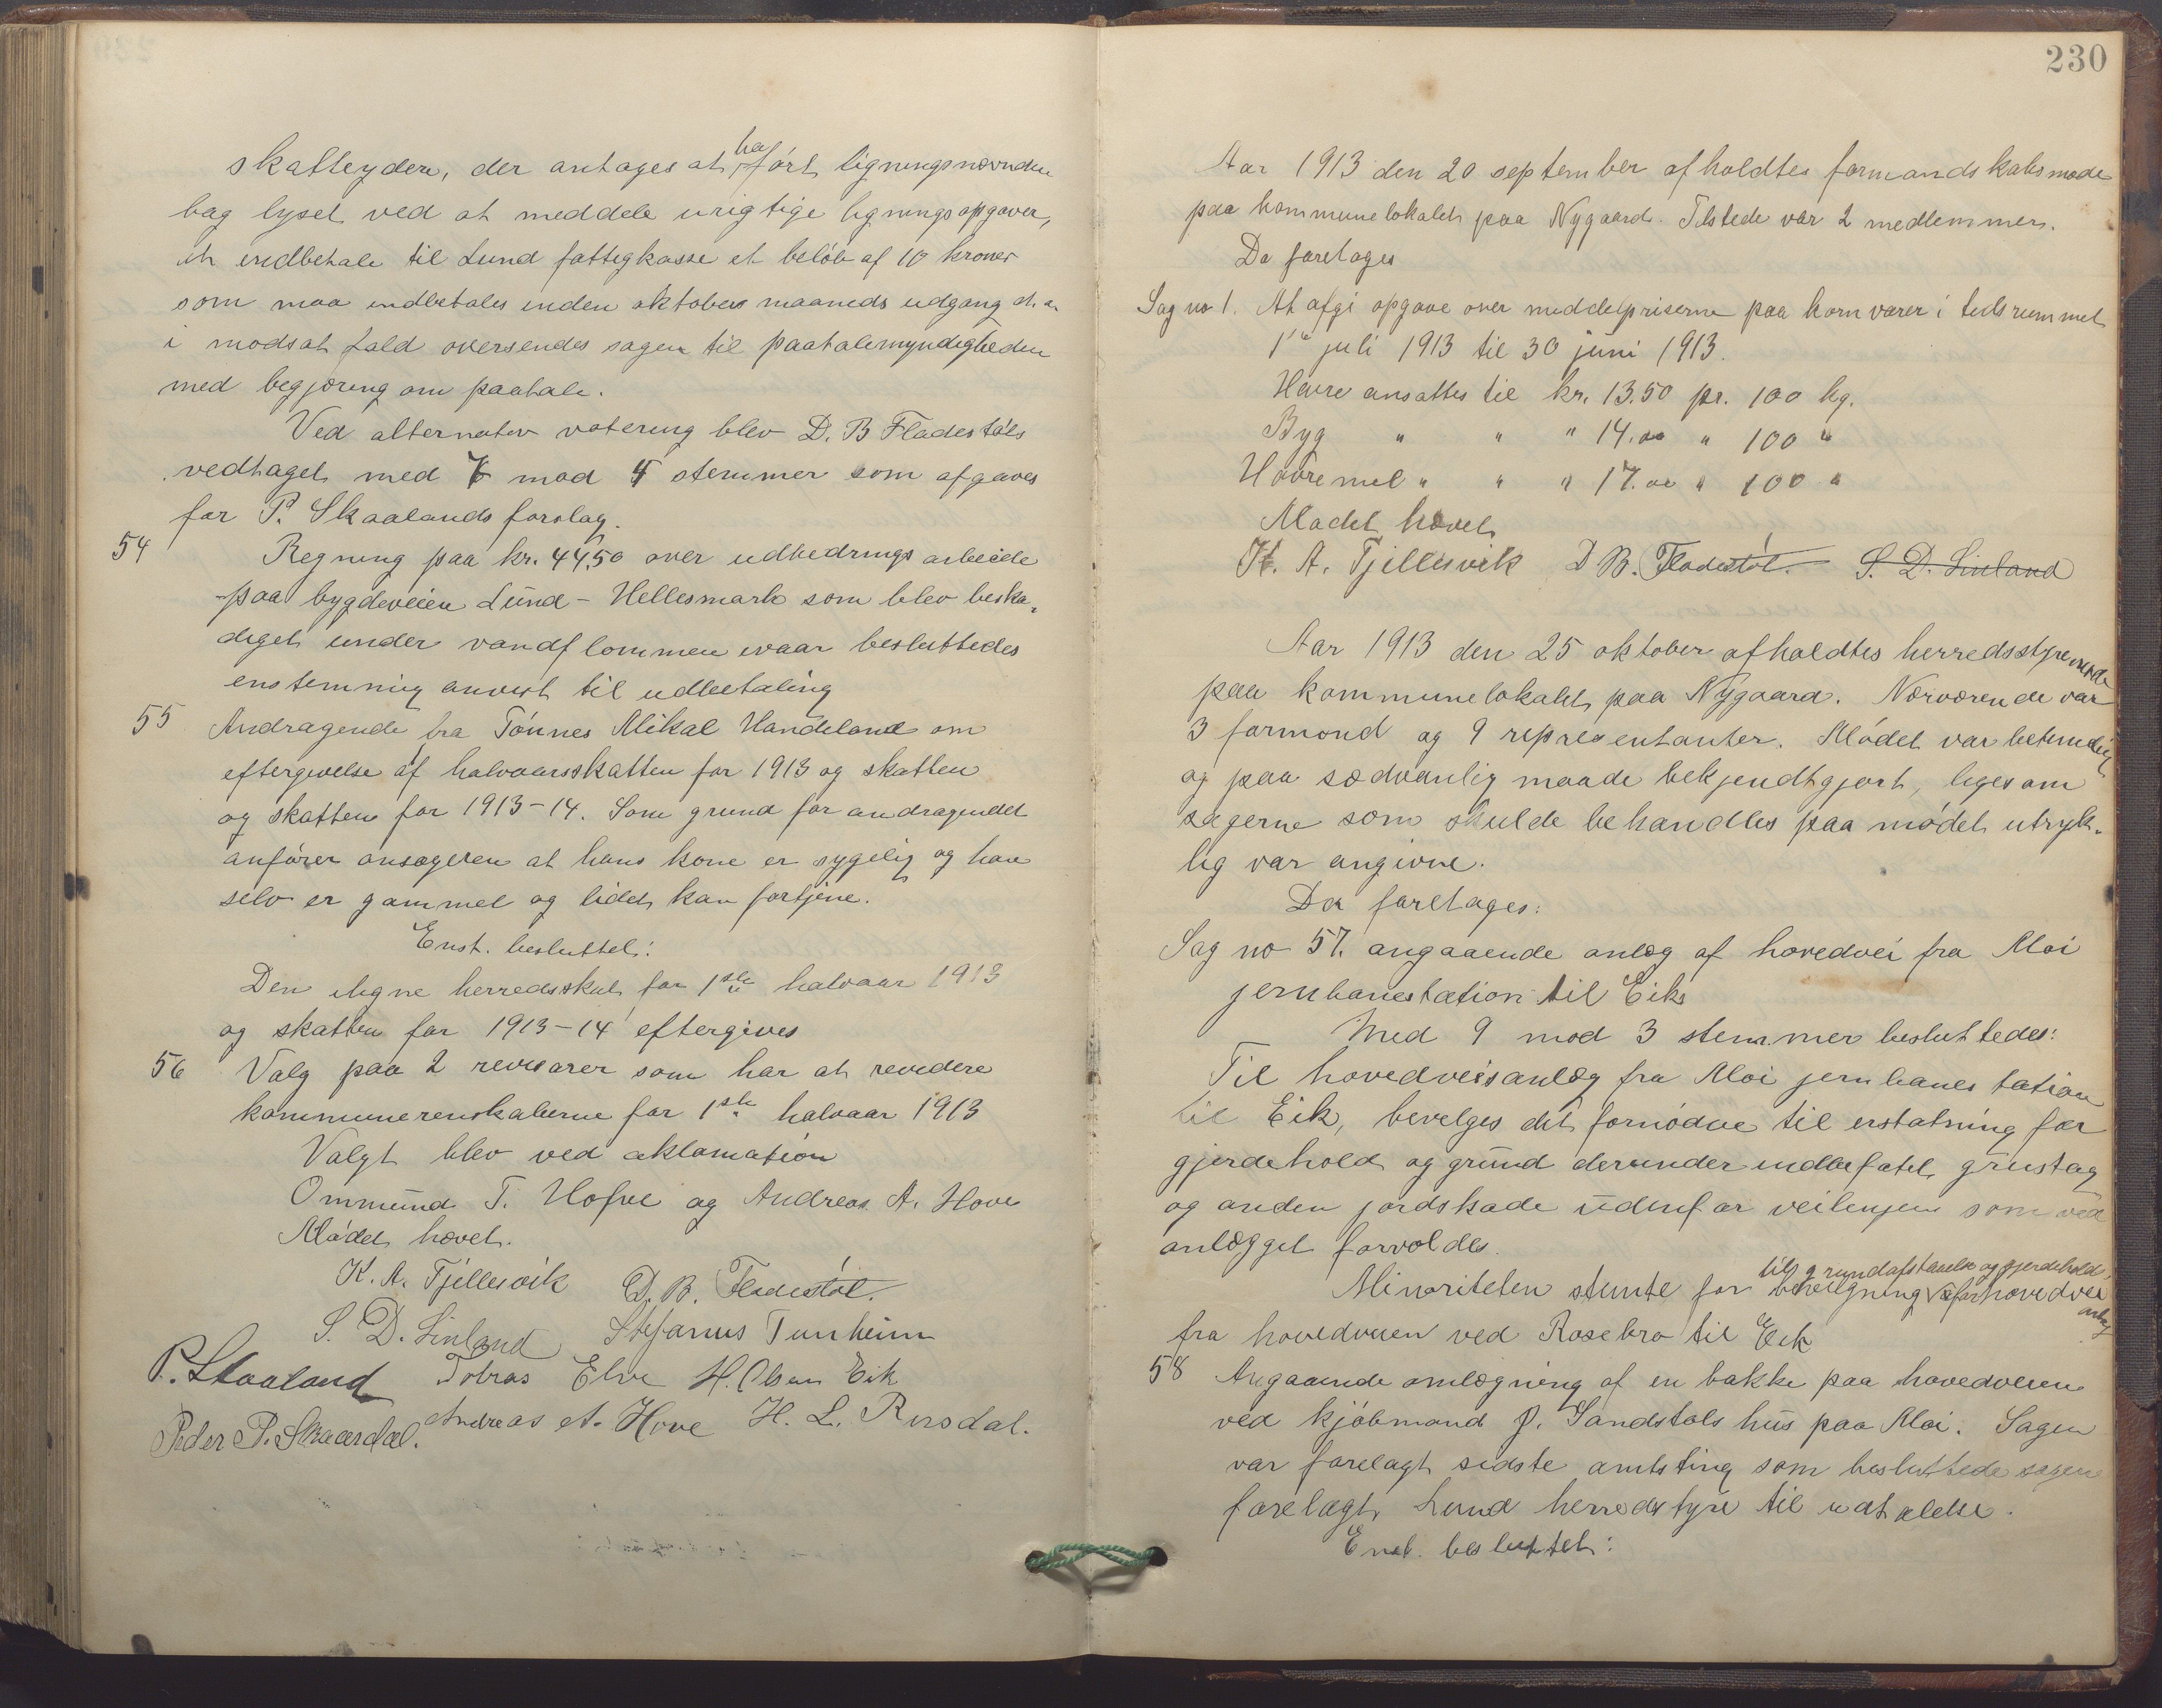 skatteydere, der antages at ha ført ligningsnævnden
bag lyset ved at meddele urigtige ligningsopgaver,
at indbetale til Lund fattigkasse et beløb af 10 kroner
som maa indbetales inden oktober maaneds udgang d. a.
i modsat fald oversendes sagen til paatalemyndigheden
med begjæring om paatale.
Ved alternativ votering blev D. B Fladestøls
vedtaget med mod stemmer som afgaves
for P. Skaalands forslag.
54 Regning paa kr. 44,50 over udbedringsarbeide
paa bygdeveien Lund - Hellesmark som blev beska-
diget under vandflommen ivaar besluttedes
enstemmig anvist til udbetaling
55 Andragende fra Tønnes Mikal Handeland om
eftergivelse af halvaarsskatten for 1913 og skatten
og skatten for 1913-14. Som grund for andragendet
anfører ansøgeren at hans kone er sygelig og han
selv er gammel og lidet kan fortjene.
Enst. besluttet:
Den iligne herredsskat for 1ste halvaar 1913
og skatten for 1913-14 eftergives
56 Valg paa 2 revisorer som har at revidere
kommunerenskaberne for 1ste halvaar 1913
Valgt blev ved aklamation
Ommund T. Hofve og Andreas A. Hove
Mødet hævet.
K. A. Fjellesvik D. B. Fladestøl.
S. D. Linland Stefanus Tunheim
P. Skaaland Tobias Elve H. Olsen Eik
Peder P. Skaardal. Andreas A. Hove H. L. Rusdal.
230
Aar 1913 den 20 september afholdtes formandskabsmøde
paa kommunelokalet paa Nygaard. Tilstede var 2 medlemmer.
Da foretoges
Sag no 1. At afgi opgave over middelpriserne paa kornvarer i tidsrummet
1ste juli 1913 til 30 juni 1913.
Havre ansattes til kr. 13.50 pr. 100 kg.
Byg " " " 14.00 " 100 "
Havremel " " " 17.00 " 100 "
Mødet hævet
K. A. Fjellesvik D B. Fladestøl. S. D. Linland
Aar 1913 den 25 oktober afholdtes herredsstyremøde
paa kommunelokalet paa Nygaard. Nærværende var
3 formænd og 9 representanter. Mødet var betimelig
og paa sædvanlig maade bekjendtgjort, ligesom
sagerne som skulde behandles paa mødet utryk-
lig var angivne.
Da foretages:
Sag no 57. angaaende anlæg af hovedvei fra Moi
jernbanestation til Eik
Med 9 mod 3 stemmer besluttedes:
Til hovedveisanlæg fra Moi jernbanestation
til Eik, bevilges det fornødne til erstatning for
gjerdehold og grund derunder indbefatet grustag
og anden jordskade udenfor veilinjen som ved
anlægget forvoldes.
Minoriteten stemte for bevilgning til grundafstaaelse og gjerdehold for hovedvei
anlæg
fra hovedveien ved Rosebro til Eik
58 Angaaende omlægning af en bakke paa hovedveien
ved kjøbmand J. Sandstøls hus paa Moi. Sagen
var forelagt sidste amtsting som besluttede sagen
forelagt Lund herredstyre til udtalelse.
Enst. besluttet: